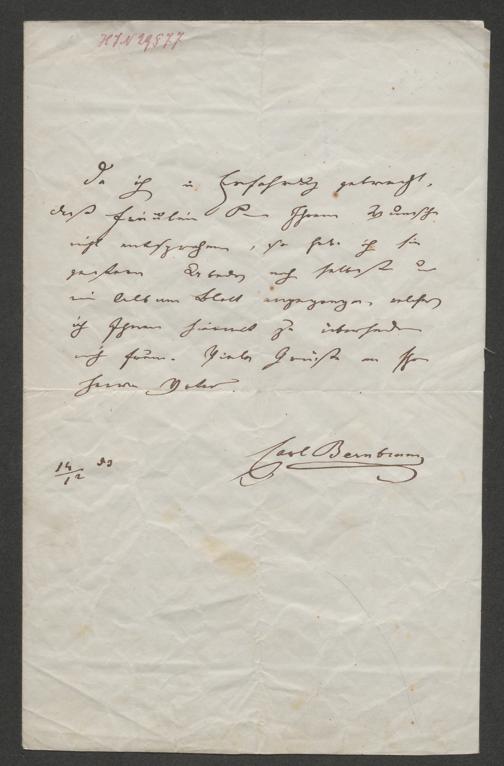 HIN 29877
Da ich in Erfahrung gebracht,
daß Fräulein Ihrem Wunsche
nicht entsprochen, so habe ich sie
gestern Abends noch selbst um
ein Album Blatt angegangen, welches
ich Ihnen hiemit zu übersenden
mich freue. Viele Grüße an Ihren
Herrn Vater.
Carl Bernbrunn
14/12 53